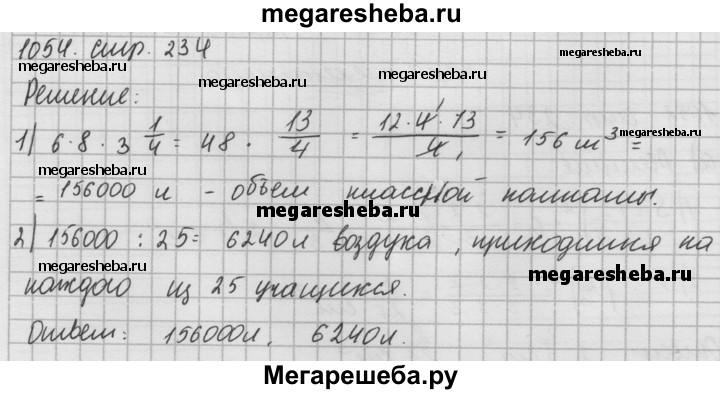 megaresheba.ru
1054. стр. 234
megaresheba.ru megaresheba.ru megaresheba.ru
Решение:
1) 6·8·3 1/4 = 48 · 13/4 = 12·4·13/4 = 156 м³ =
= 156000 л - объём классной комнаты.
megaresheba.ru
2) 156000 : 25 = 6240 л воздуха, приходится на
megaresheba.ru megaresheba.ru
каждого из 25 учащихся.
Ответ: 156000 л, 6240 л.
Мегарешеба.ру